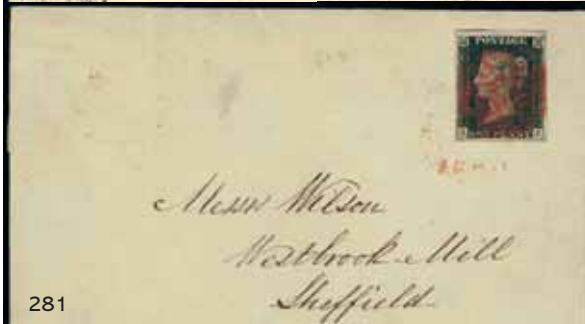 POSTAGE
ONE PENNY
Messrs Wilson
Westbrook Mill
Sheffield
281